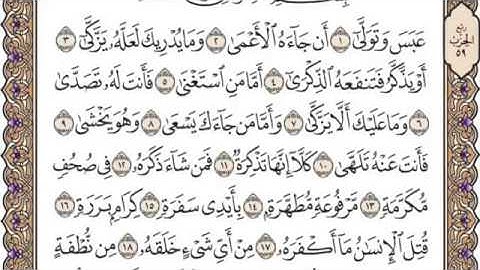 عَبَسَ وَتَوَلَّىٰٓ ١ أَن جَآءَهُ ٱلْأَعْمَىٰ ٢ وَمَا يُدْرِيكَ لَعَلَّهُۥ يَزَّكَّىٰٓ ٣
أَوْ يَذَّكَّرُ فَتَنفَعَهُ ٱلذِّكْرَىٰٓ ٤ أَمَّا مَنِ ٱسْتَغْنَىٰ ٥ فَأَنتَ لَهُۥ تَصَدَّىٰ
٦ وَمَا عَلَيْكَ أَلَّا يَزَّكَّىٰ ٧ وَأَمَّا مَن جَآءَكَ يَسْعَىٰ ٨ وَهُوَ يَخْشَىٰ ٩
فَأَنتَ عَنْهُ تَلَهَّىٰ ١٠ كَلَّآ إِنَّهَا تَذْكِرَةٌ ١١ فَمَن شَآءَ ذَكَرَهُۥ ١٢ فِى صُحُفٍ
مُّكَرَّمَةٍ ١٣ مَّرْفُوعَةٍ مُّطَهَّرَةٍۭ ١٤ بِأَيْدِى سَفَرَةٍ ١٥ كِرَامٍۭ بَرَرَةٍ ١٦
قُتِلَ ٱلْإِنسَٰنُ مَآ أَكْفَرَهُۥ ١٧ مِنْ أَىِّ شَىْءٍ خَلَقَهُۥ ١٨ مِن نُّطْفَةٍ
ربع
الحزب
٥٩